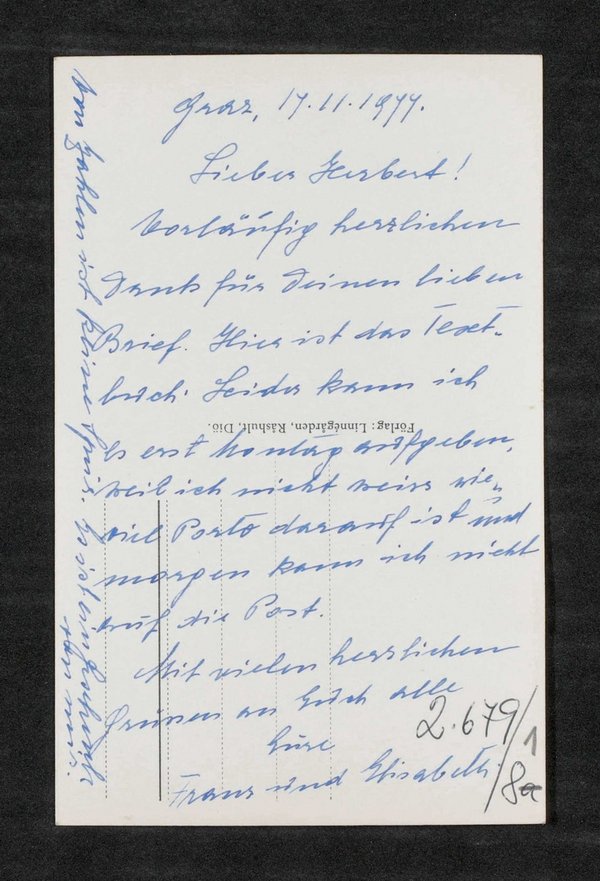 Graz, 17.11.1977.
Lieber Herbert!
Vorläufig herzlichen
Dank für Deinen lieben
Brief. Hier ist das Text-
buch. Leider kann ich
es erst Montag aufgeben,
weil ich nicht weiss wie-
viel Porto darauf ist und
morgen kann ich nicht
auf die Post.
Mit vielen herzlichen
Grüssen an Euch alle
Eure
Franz und Elisabeth.
Von Zahlen ist keine
Es ist ein
von uns.
Förlag: Linnégården, Råshult, Diö.
2.679/1
8a